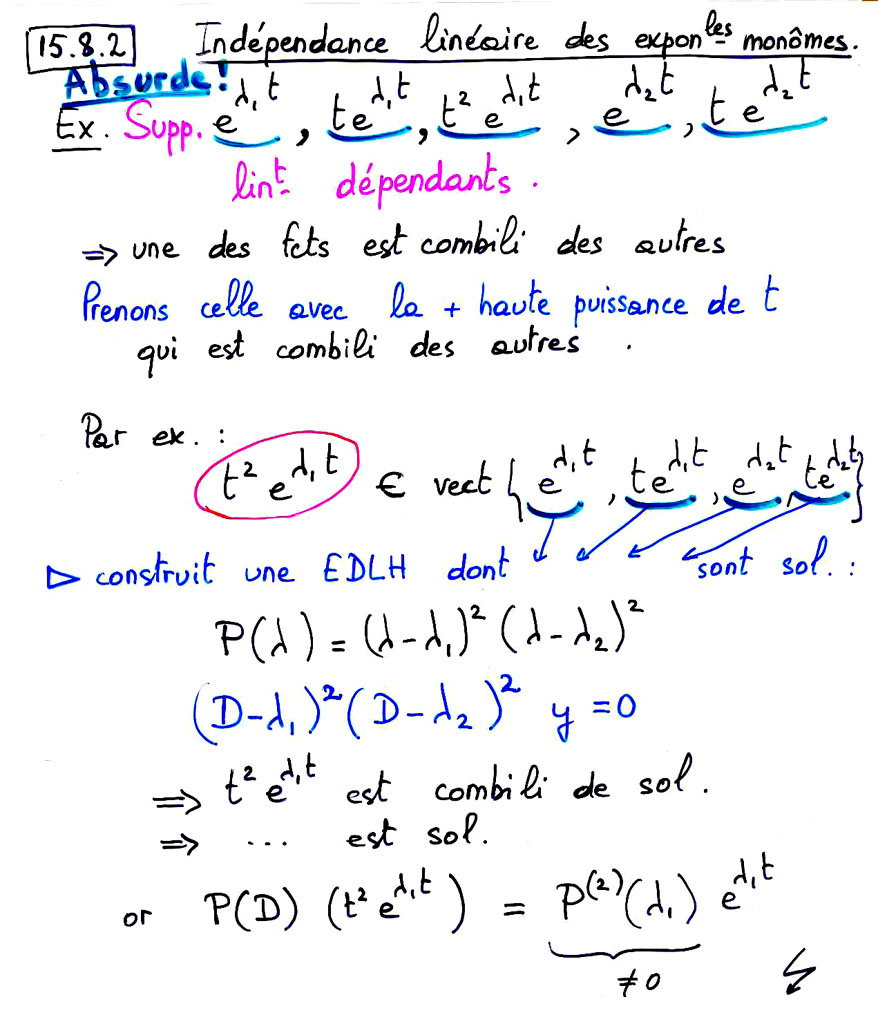 15.8.2 Indépendance linéaire des expon^les monômes.
Absurde!
Ex. Supp. e^{λ₁t}, te^{λ₁t}, t² e^{λ₁t}, e^{λ₂t}, t e^{λ₂t}
lin^t dépendants.
⇒ une des fcts est combili des autres
Prenons celle avec la + haute puissance de t
qui est combili des autres.
Par ex. :
t² e^{λ₁t} ∈ vect {e^{λ₁t}, te^{λ₁t}, e^{λ₂t}, te^{λ₂t}}
▷ construit une EDLH dont ↙ ↙ ↙ ↙ sont sol. :
P(λ) = (λ-λ₁)² (λ-λ₂)²
(D-λ₁)² (D-λ₂)² y = 0
⇒ t² e^{λ₁t} est combili de sol.
⇒ ... est sol.
or P(D) (t² e^{λ₁t}) = P^{(2)}(λ₁) e^{λ₁t}
≠ 0 ↯